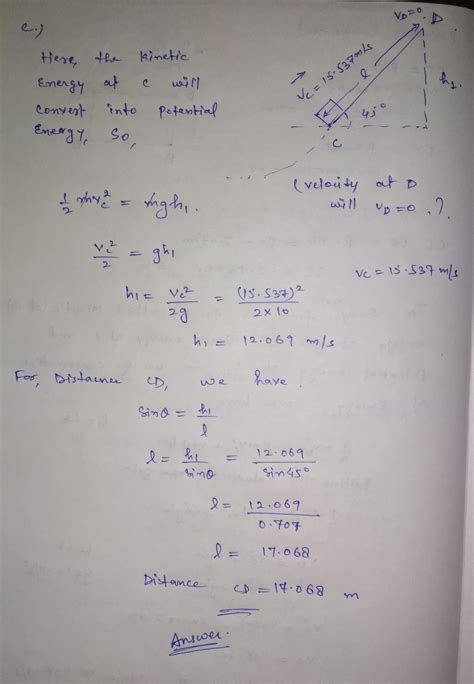 c.)
Here, the kinetic
Energy at c will
convert into potential
Energy, So,
VD=0 D
Vc = 15.537 m/s
l
h1
45°
C
(velocity at D
will VD=0.).
1/2 mvc² = mgh1.
Vc²/2 = gh1
Vc = 15.537 m/s
h1 = Vc²/2g = (15.537)²/2×10
h1 = 12.069 m/s
For, Distance CD, we have.
Sinθ = h1/l
l = h1/sinθ = 12.069/sin45°
l = 12.069/0.707
l = 17.068
Distance CD = 17.068 m
Answer.